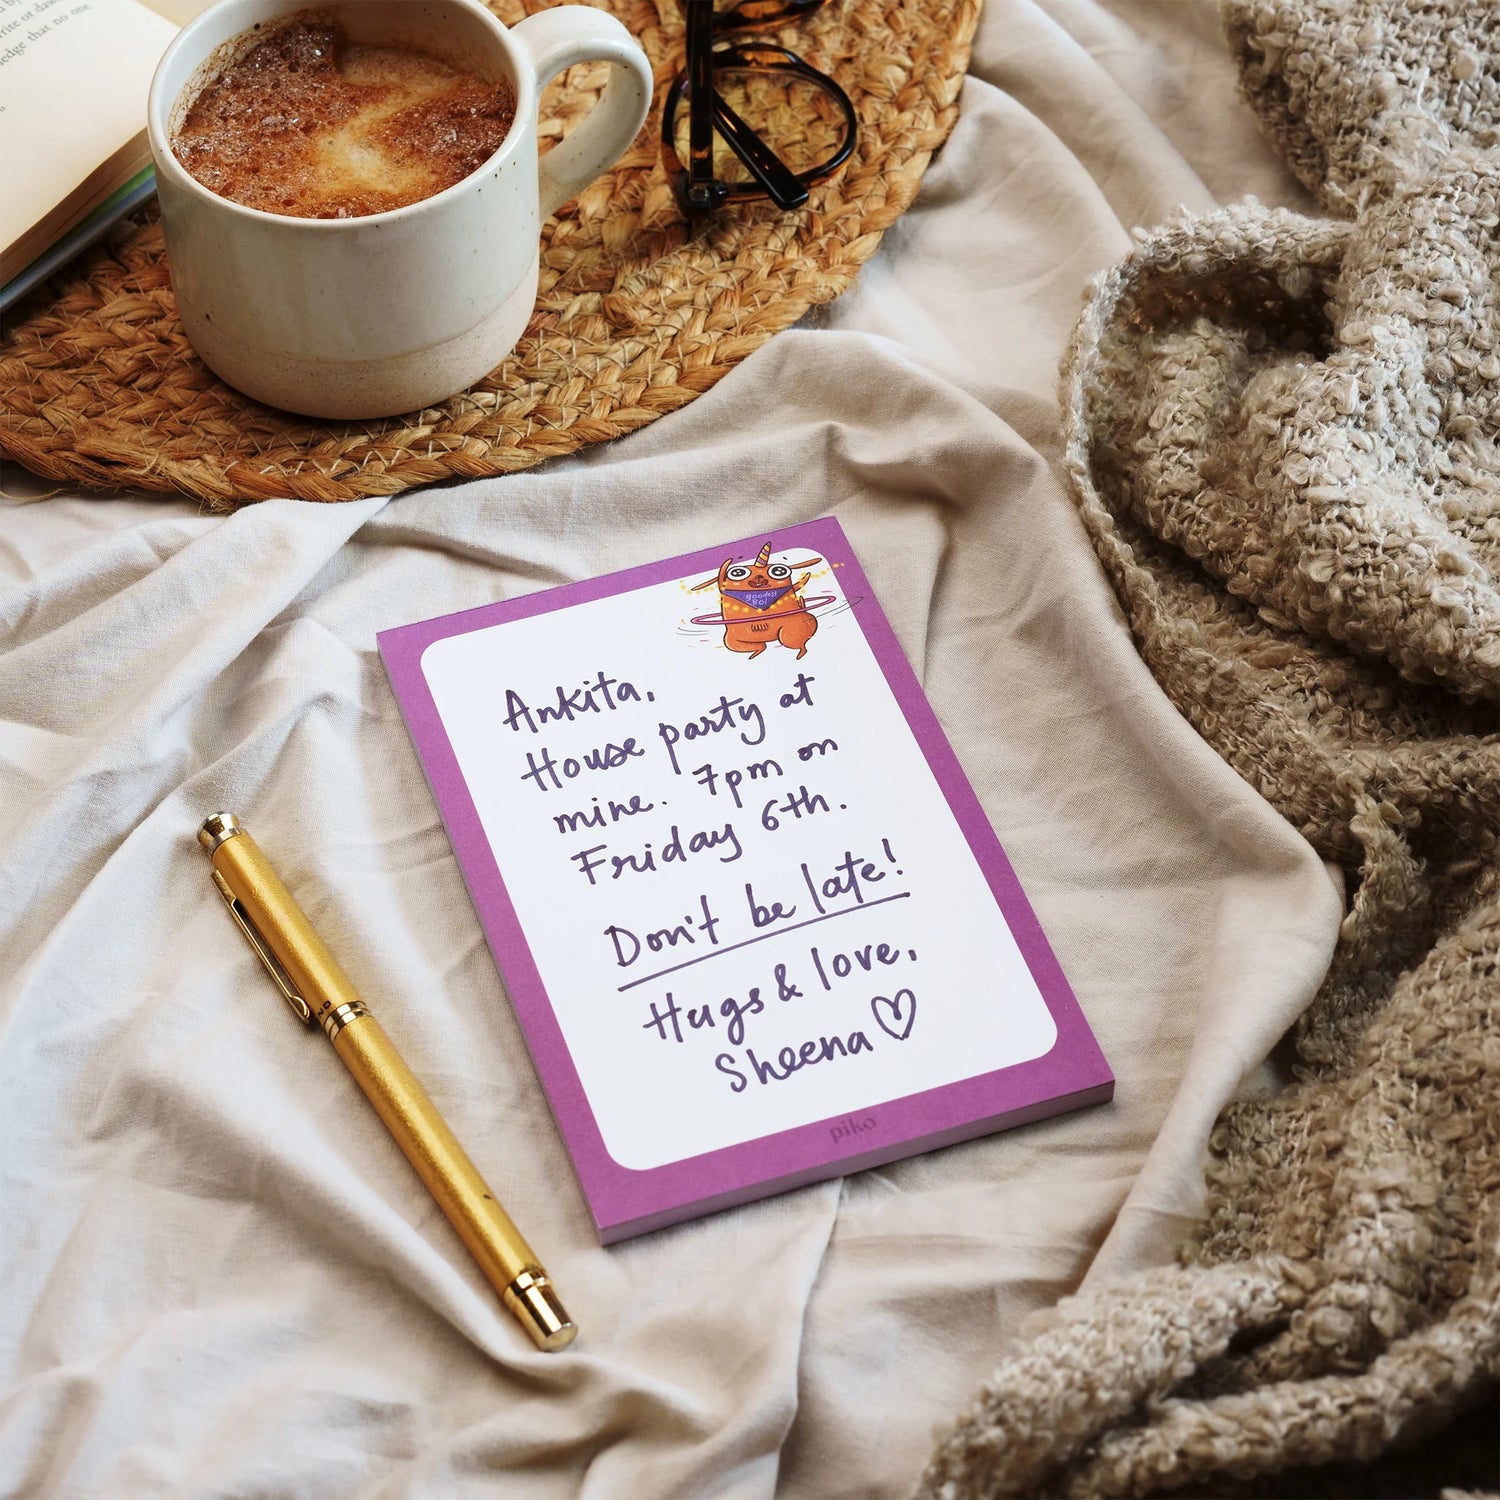 write or daw
ledge that no one
goodest
boi
Ankita,
House party at
mine. 7pm on
Friday 6th.
Don't be late!
Hugs & love,
Sheena
piko